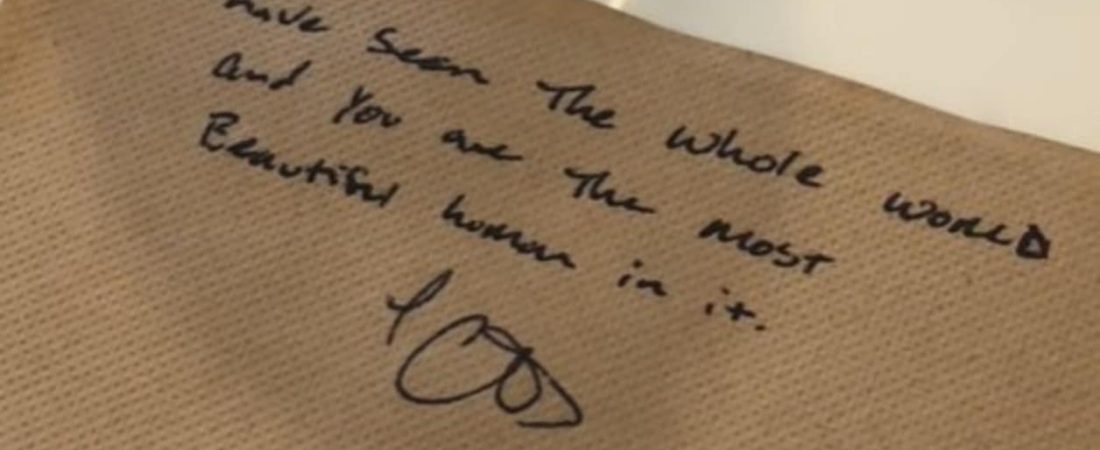 have seen The whole world
and You are The most
Beautiful human in it.